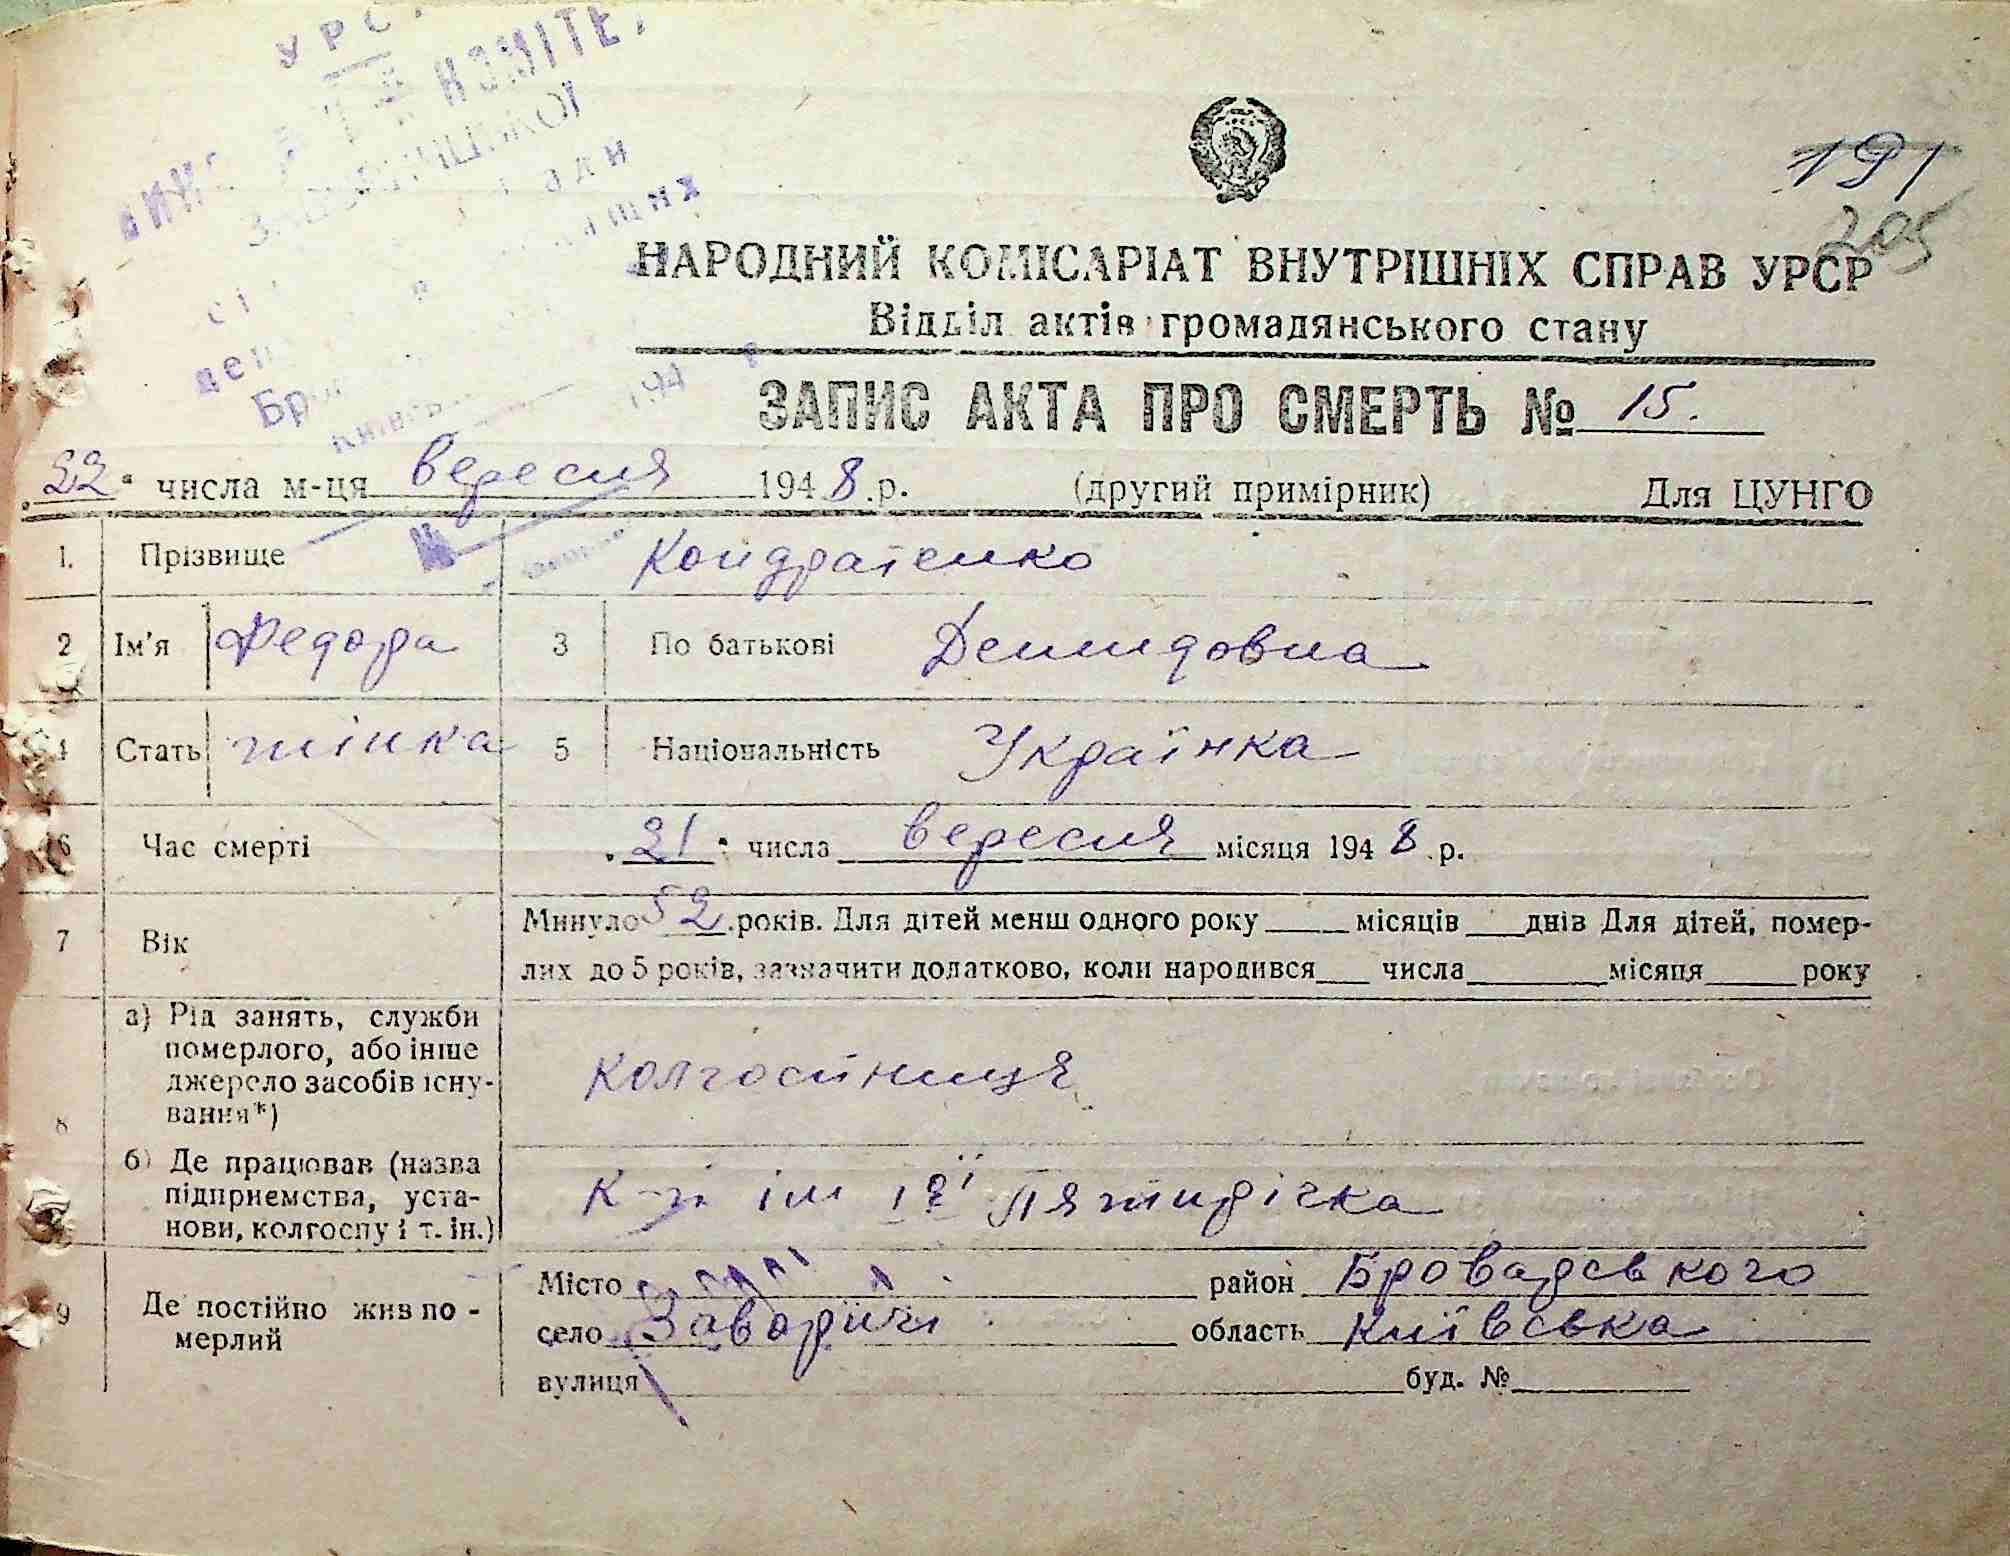 УРС
ЗАВОРИЦЬКОЇ
191
205
НАРОДНИЙ КОМІСАРІАТ ВНУТРІШНІХ СПРАВ УРСР
Відділ актів громадянського стану
ЗАПИС АКТА ПРО СМЕРТЬ № 15.
"22" числа м-ця вересня 1948 р. (другий примірник) Для ЦУНГО
1. Прізвище Кондратенко
2 Ім'я Федора 3 По батькові Демидовна
4 Стать жінка 5 Національність Українка
6 Час смерті "21" числа вересня місяця 1948 р.
7 Вік Минуло 52 років. Для дітей менш одного року ____ місяців ___ днів Для дітей, помер-
лих до 5 років, зазначити додатково, коли народився ___ числа ______ місяця _____ року
8 а) Рід занять, служби
померлого, або інше
джерело засобів існу-
вання*)
колгоспниця
б) Де працював (назва
підприємства, уста-
нови, колгоспу і т. ін.)
к-п ім П'ятирічка
9 Де постійно жив по-
мерлий
Місто район Броварського
село Заворичі область Київська
вулиця буд. №